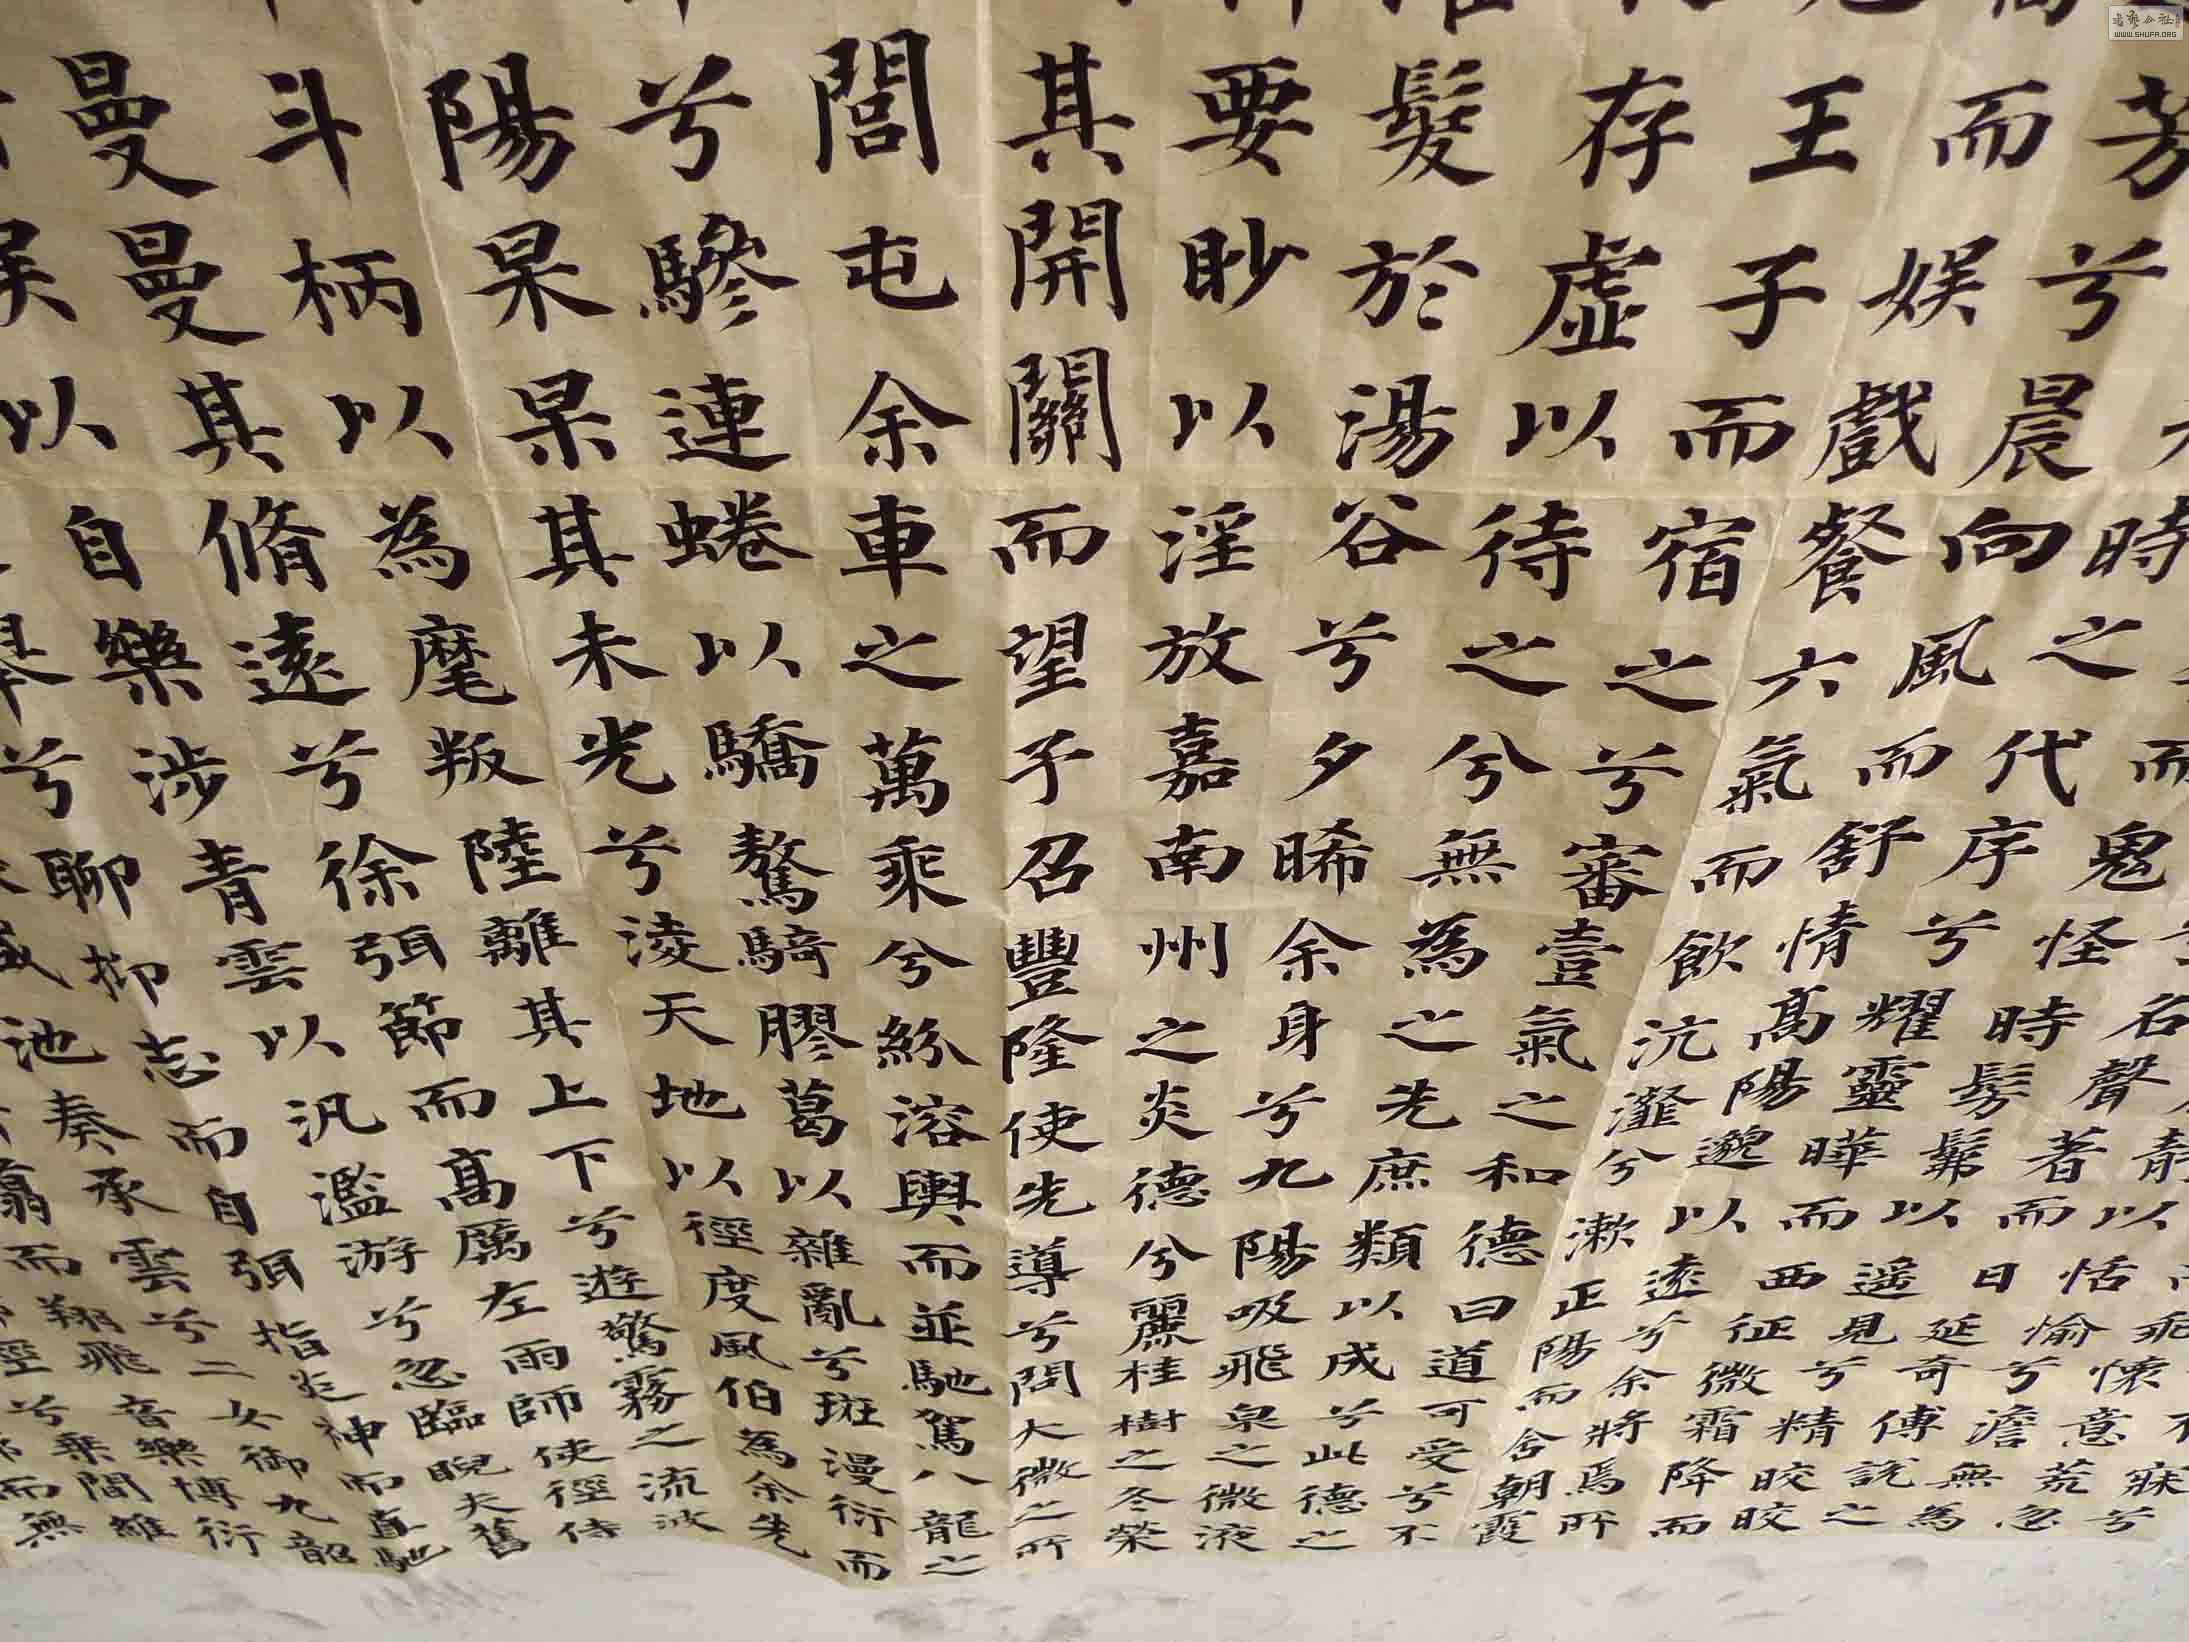 不寐兮
而乖懷意荒忽
靜以恬愉兮澹無為
兮名聲著而日延奇傅說之
而鬼怪時髣髴以遙見兮精晈晈
時之代序兮耀靈曄而西征微霜降而
芳兮晨向風而舒情高陽邈以遠兮余將焉所
而娛戲餐六氣而飲沆瀣兮漱正陽而含朝霞
王子而宿之兮審壹氣之和德曰道可受兮不
存虛以待之兮無為之先庶類以成兮此德之
髮於湯谷兮夕晞余身兮九陽吸飛泉之微液
要眇以淫放嘉南州之炎德兮麗桂樹之冬榮
其開關而望予召豐隆使先導兮問大微之所
閭屯余車之萬乘兮紛溶輿而並馳駕八龍之
兮驂連蜷以驕驁騎膠葛以雜亂兮斑漫衍而
陽杲杲其未光兮淩天地以徑度風伯為余先
斗柄以為麾叛陸離其上下兮遊驚霧之流波
曼曼其脩遠兮徐弭節而高厲左雨師使徑侍
娛以自樂涉青雲以汎濫游兮忽臨睨夫舊
舉兮聊抑志而自弭指炎神而直馳
咸池奏承雲兮二女御九韶
翥而翔飛音樂博衍
徑兮乘間維
而無
WWW.SHUFA.ORG